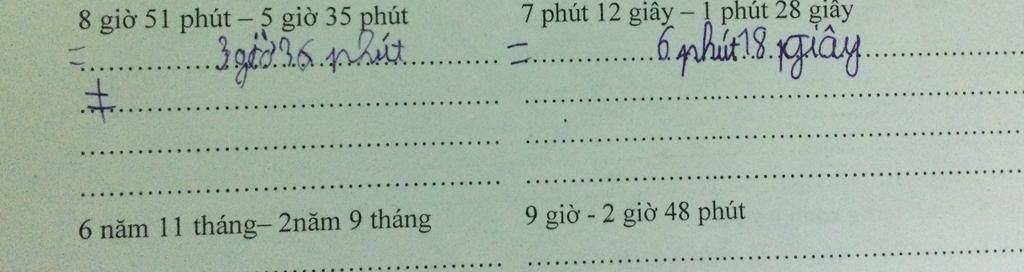 8 giờ 51 phút – 5 giờ 35 phút
= 3 giờ 36 phút
‡
7 phút 12 giây – 1 phút 28 giây
= 6 phút 18 giây
6 năm 11 tháng– 2năm 9 tháng
9 giờ - 2 giờ 48 phút